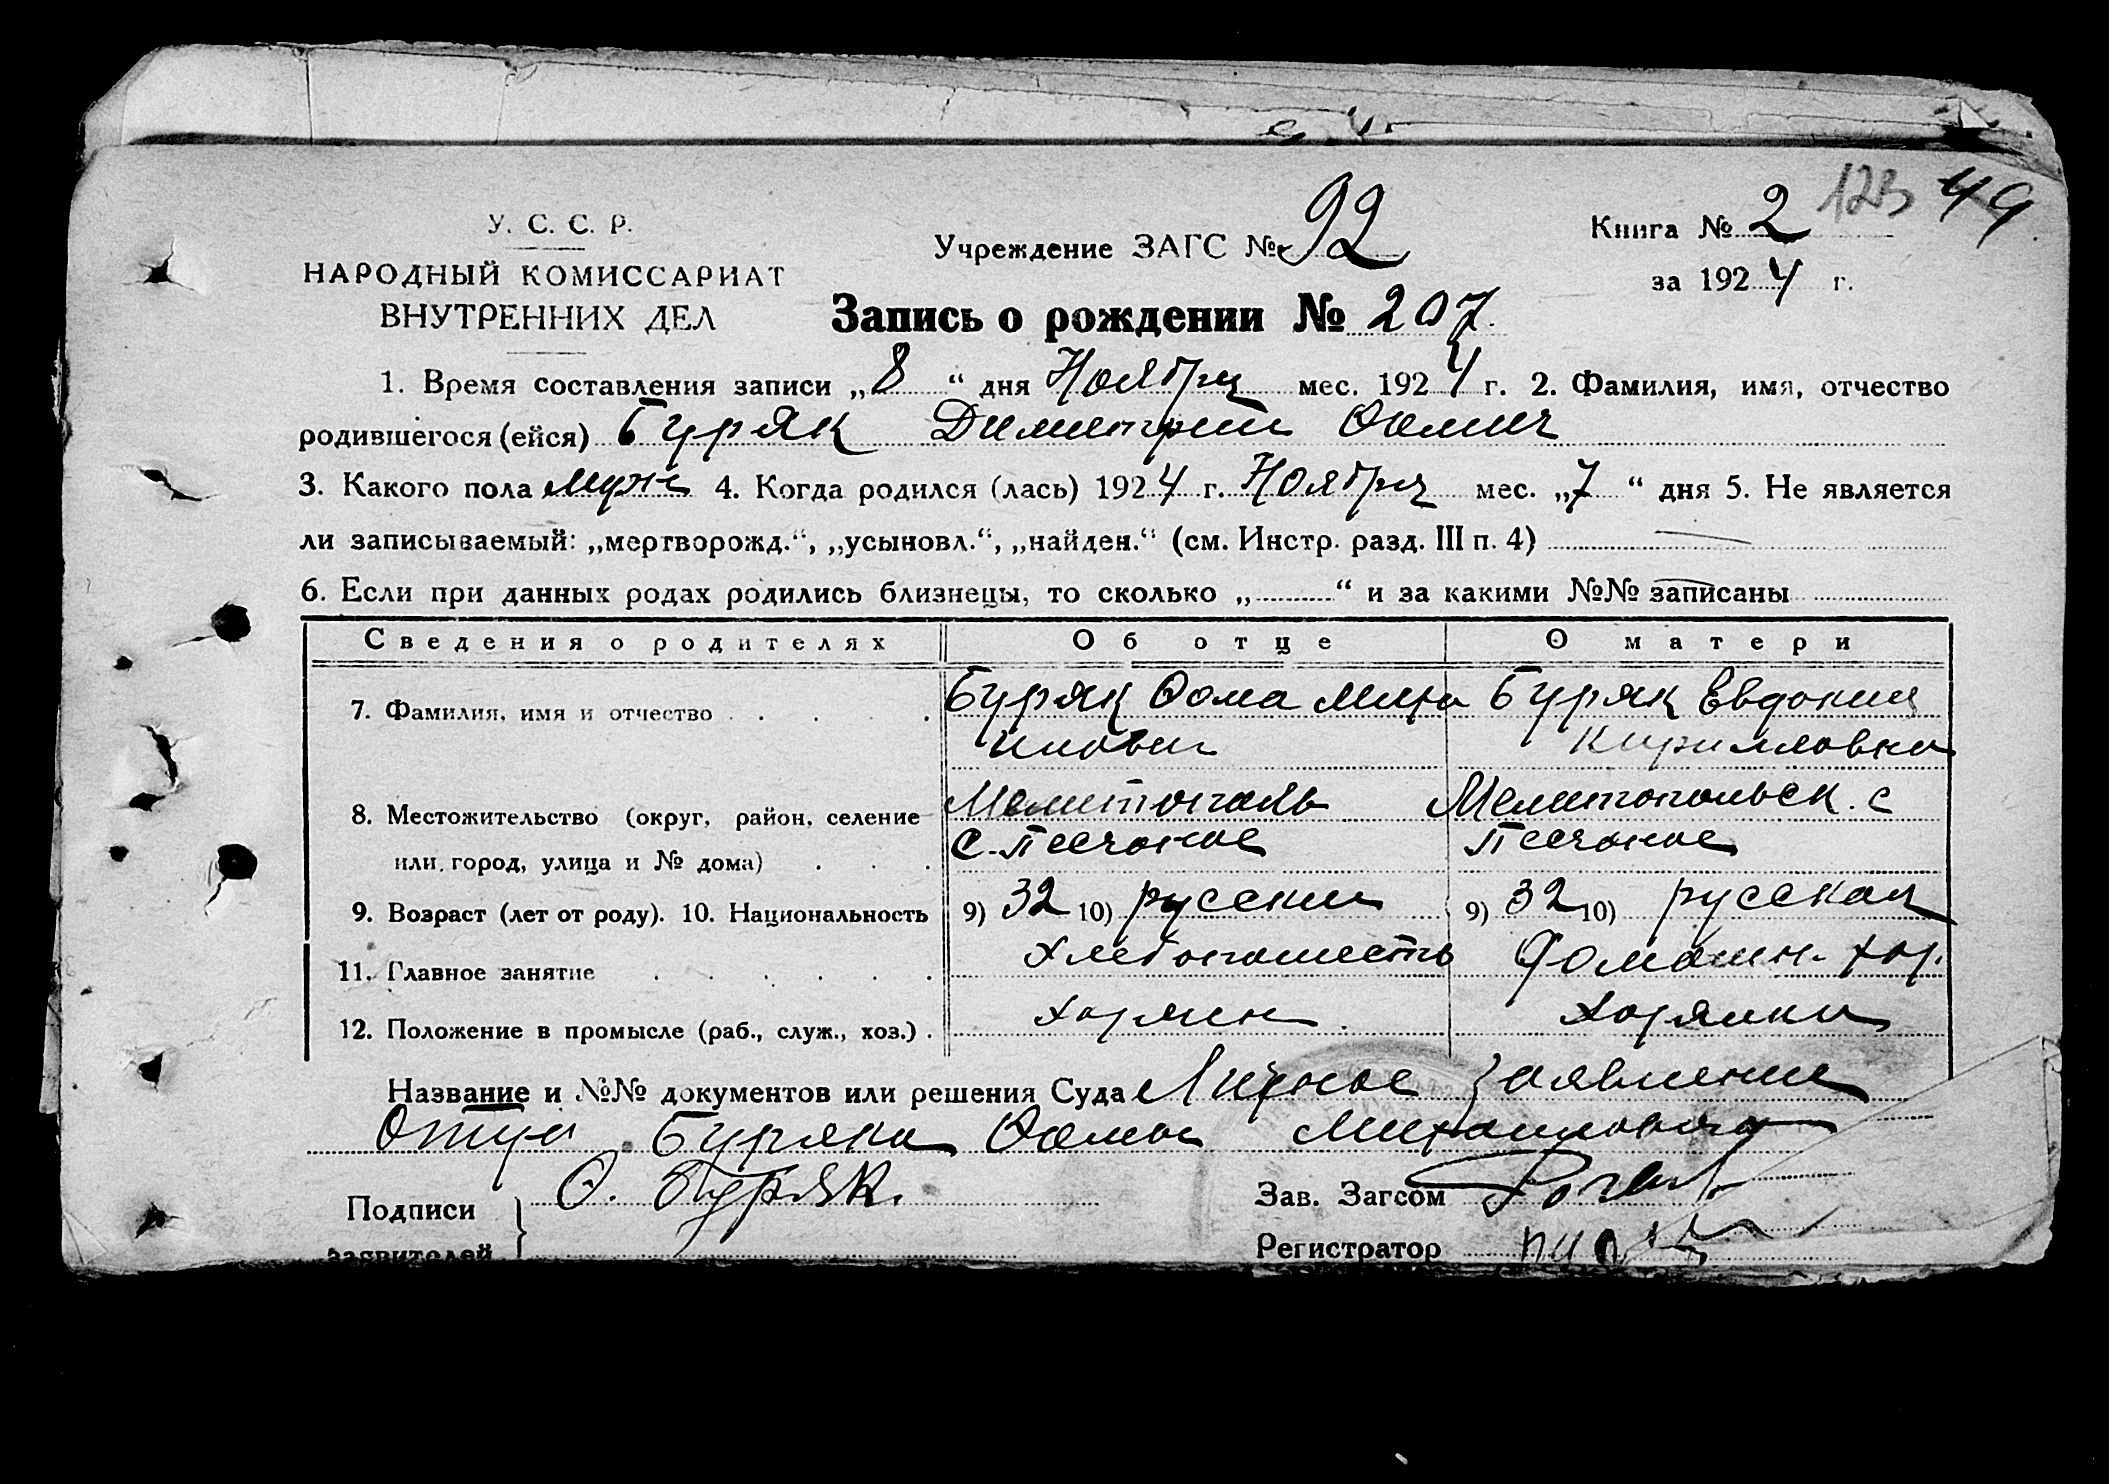 123 49
У. С. С. Р.
НАРОДНЫЙ КОМИССАРИАТ
ВНУТРЕННИХ ДЕЛ
Учреждение ЗАГС № 92
Книга № 2
за 1924 г.
Запись о рождении № 207
1. Время составления записи „8“ дня Ноября мес. 1924 г. 2. Фамилия, имя, отчество
родившегося (ейся) Буряк Димитрий Фомич
3. Какого пола муж 4. Когда родился (лась) 1924 г. Ноября мес. „7“ дня 5. Не является
ли записываемый: „мертворожд.“, „усыновл.“, „найден.“ (см. Инстр. разд. III п. 4) —
6. Если при данных родах родились близнецы, то сколько „ “ и за какими №№ записаны —
Сведения о родителях Об отце О матери
7. Фамилия, имя и отчество Буряк Фома Миха Буряк Евдокия
илович Кирилловна
8. Местожительство (округ, район, селение Мелитополь Мелитопольск. с
или город, улица и № дома) с. Песчаное Песчаное
9. Возраст (лет от роду). 10. Национальность 9) 32 10) русский 9) 32 10) русская
11. Главное занятие хлебопашеств Домашн. хоз.
12. Положение в промысле (раб., служ., хоз.) хозяин хозяйка
Название и №№ документов или решения Суда Личное заявление
Отца Буряка Фомы Михайловича
Подписи Ф. Буряк. Зав. Загсом
заявителей Регистратор